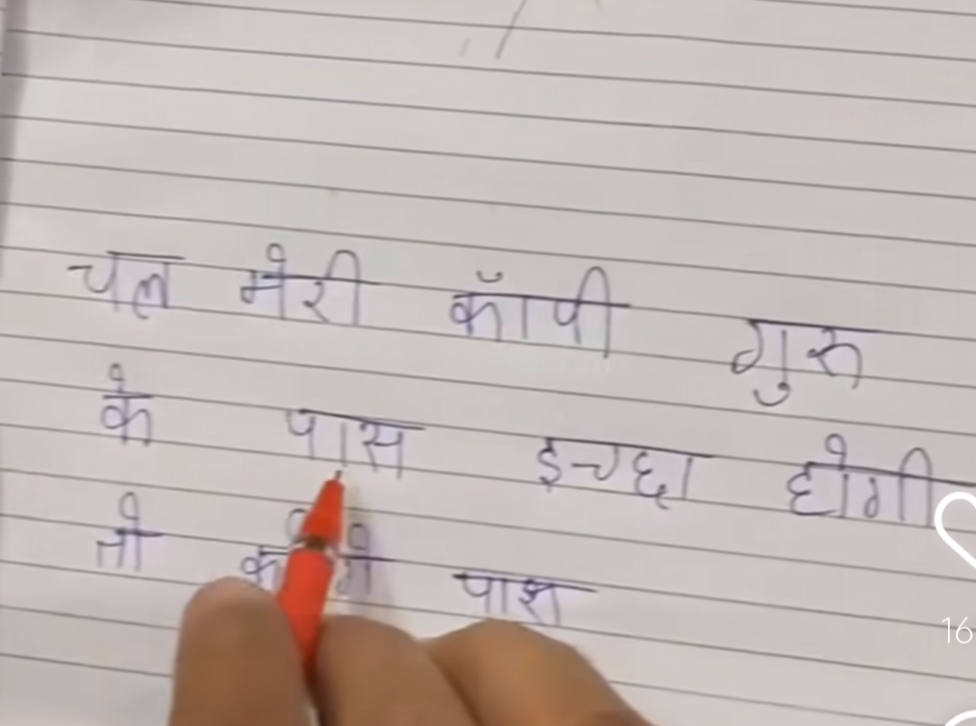 चल मेरी कॉपी गुरु
के पास इच्छा होगी
तो पाश
16